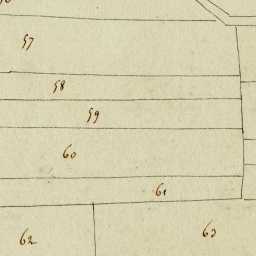 57
58
59
60
61
62
63